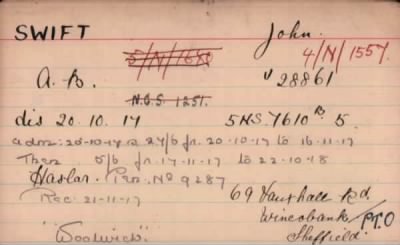 SWIFT John.
5/N/1670 4/N/1557.
A.B. J 28861
N.G.S. 1251.
dis 20.10.17 5NS.7610 B 5.
adm: 20-10-17 @ 27/6 fr. 20-10-17 to 16-11-17
Then 5/6 fr. 17-11-17 to 22-10-18
Haslar. Pen. No 9287
Rec. 21-11-17 69 Vauxhall Rd.
Wincobank P.T.O
"Woolwich." Sheffield.